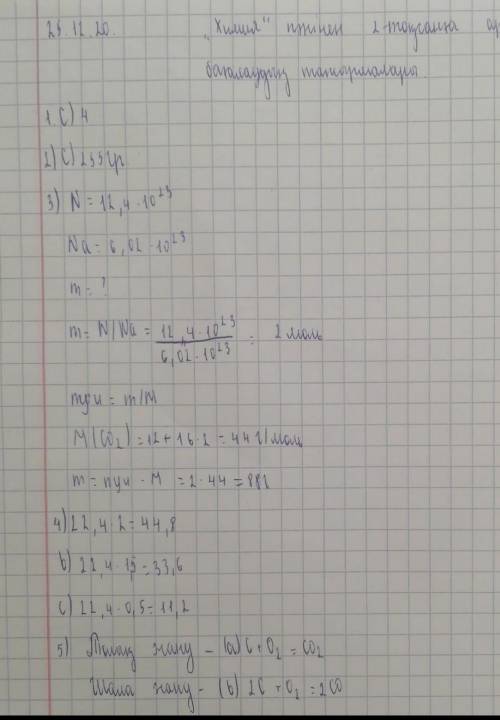 25.12.20. "Химия" пәнінен 2-тоқсанға
бағалаудың тапсырмалары.
1. C) 4
2) C) 235гр
3) N = 12,4·10²³
Na = 6,02·10²³
m = ?
m = N/Na = 12,4·10²³ / 6,02·10²³ = 2 моль
nүн = m/M
M(CO₂) = 12 + 16·2 = 44 г/моль
m = nүн · M = 2·44 = 88г
4) 22,4·2 = 44,8
b) 22,4·1,5 = 33,6
c) 22,4·0,5 = 11,2
5) Толық жану – (a) C + O₂ = CO₂
Шала жану – (b) 2C + O₂ = 2CO